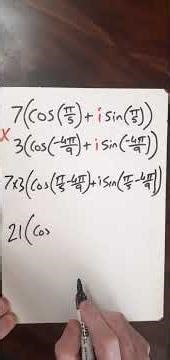 7(cos(π/5)+isin(π/5))
x 3(cos(-4π/9)+isin(-4π/9))
7x3(cos(π/5-4π/9)+isin(π/5-4π/9))
21(cos